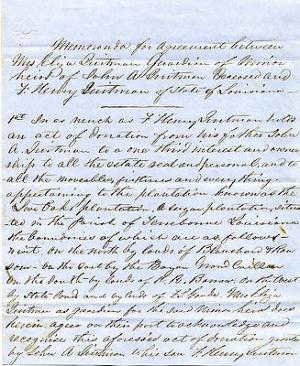 Memoranda for agreement between
Mrs Eliza Quitman Guardian of Minor
heirs of John A Quitman Deceased and
F. Henry Quitman of State of Louisiana
1st In as much as F Henry Quitman holds
an act of donation from his father John
A Quitman to a one third interest and owner
ship to all the estate real and personal, and to
all the moveables, fixtures and everything
appertaining to the plantation known as the
Live Oaks plantation, a sugar plantation, situa
ted in the Parish of Terrebonne Louisiana
the boundaries of which are as follows
vizt. on the north by lands of Blanchard &
on the east by the Bayou Grand Caillou
on the South by lands of R. R. Barrow, on the west
by State Land and by lands of Mrs Eliza
Quitman as guardian for the said minor heirs does
herein agree on their part to acknowledge and
recognise this aforesaid act of donation granted
by John A Quitman to his son F Henry Quitman